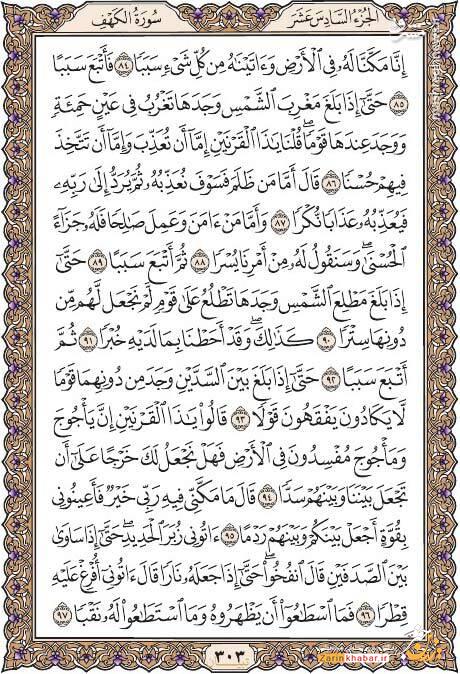 الجزء السادس عشر
سورة الكهف
إِنَّا مَكَّنَّا لَهُۥ فِي ٱلْأَرْضِ وَءَاتَيْنَٰهُ مِن كُلِّ شَيْءٍ سَبَبًا ٨٤ فَأَتْبَعَ سَبَبًا
٨٥ حَتَّىٰٓ إِذَا بَلَغَ مَغْرِبَ ٱلشَّمْسِ وَجَدَهَا تَغْرُبُ فِي عَيْنٍ حَمِئَةٍ
وَوَجَدَ عِندَهَا قَوْمًا ۗ قُلْنَا يَٰذَا ٱلْقَرْنَيْنِ إِمَّآ أَن تُعَذِّبَ وَإِمَّآ أَن تَتَّخِذَ
فِيهِمْ حُسْنًا ٨٦ قَالَ أَمَّا مَن ظَلَمَ فَسَوْفَ نُعَذِّبُهُۥ ثُمَّ يُرَدُّ إِلَىٰ رَبِّهِۦ
فَيُعَذِّبُهُۥ عَذَابًا نُّكْرًا ٨٧ وَأَمَّا مَنْ ءَامَنَ وَعَمِلَ صَٰلِحًا فَلَهُۥ جَزَآءً
ٱلْحُسْنَىٰ ۖ وَسَنَقُولُ لَهُۥ مِنْ أَمْرِنَا يُسْرًا ٨٨ ثُمَّ أَتْبَعَ سَبَبًا ٨٩ حَتَّىٰٓ
إِذَا بَلَغَ مَطْلِعَ ٱلشَّمْسِ وَجَدَهَا تَطْلُعُ عَلَىٰ قَوْمٍ لَّمْ نَجْعَل لَّهُم مِّن
دُونِهَا سِتْرًا ٩٠ كَذَٰلِكَ ۖ وَقَدْ أَحَطْنَا بِمَا لَدَيْهِ خُبْرًا ٩١ ثُمَّ
أَتْبَعَ سَبَبًا ٩٢ حَتَّىٰٓ إِذَا بَلَغَ بَيْنَ ٱلسَّدَّيْنِ وَجَدَ مِن دُونِهِمَا قَوْمًا
لَّا يَكَادُونَ يَفْقَهُونَ قَوْلًا ٩٣ قَالُوا۟ يَٰذَا ٱلْقَرْنَيْنِ إِنَّ يَأْجُوجَ
وَمَأْجُوجَ مُفْسِدُونَ فِي ٱلْأَرْضِ فَهَلْ نَجْعَلُ لَكَ خَرْجًا عَلَىٰٓ أَن
تَجْعَلَ بَيْنَنَا وَبَيْنَهُمْ سَدًّا ٩٤ قَالَ مَا مَكَّنِّي فِيهِ رَبِّي خَيْرٌ فَأَعِينُونِي
بِقُوَّةٍ أَجْعَلْ بَيْنَكُمْ وَبَيْنَهُمْ رَدْمًا ٩٥ ءَاتُونِي زُبَرَ ٱلْحَدِيدِ ۖ حَتَّىٰٓ إِذَا سَاوَىٰ
بَيْنَ ٱلصَّدَفَيْنِ قَالَ ٱنفُخُوا۟ ۖ حَتَّىٰٓ إِذَا جَعَلَهُۥ نَارًا قَالَ ءَاتُونِيٓ أُفْرِغْ عَلَيْهِ
قِطْرًا ٩٦ فَمَا ٱسْطَٰعُوٓا۟ أَن يَظْهَرُوهُ وَمَا ٱسْتَطَٰعُوا۟ لَهُۥ نَقْبًا ٩٧
٣٠٣
Zarinkhabar.ir